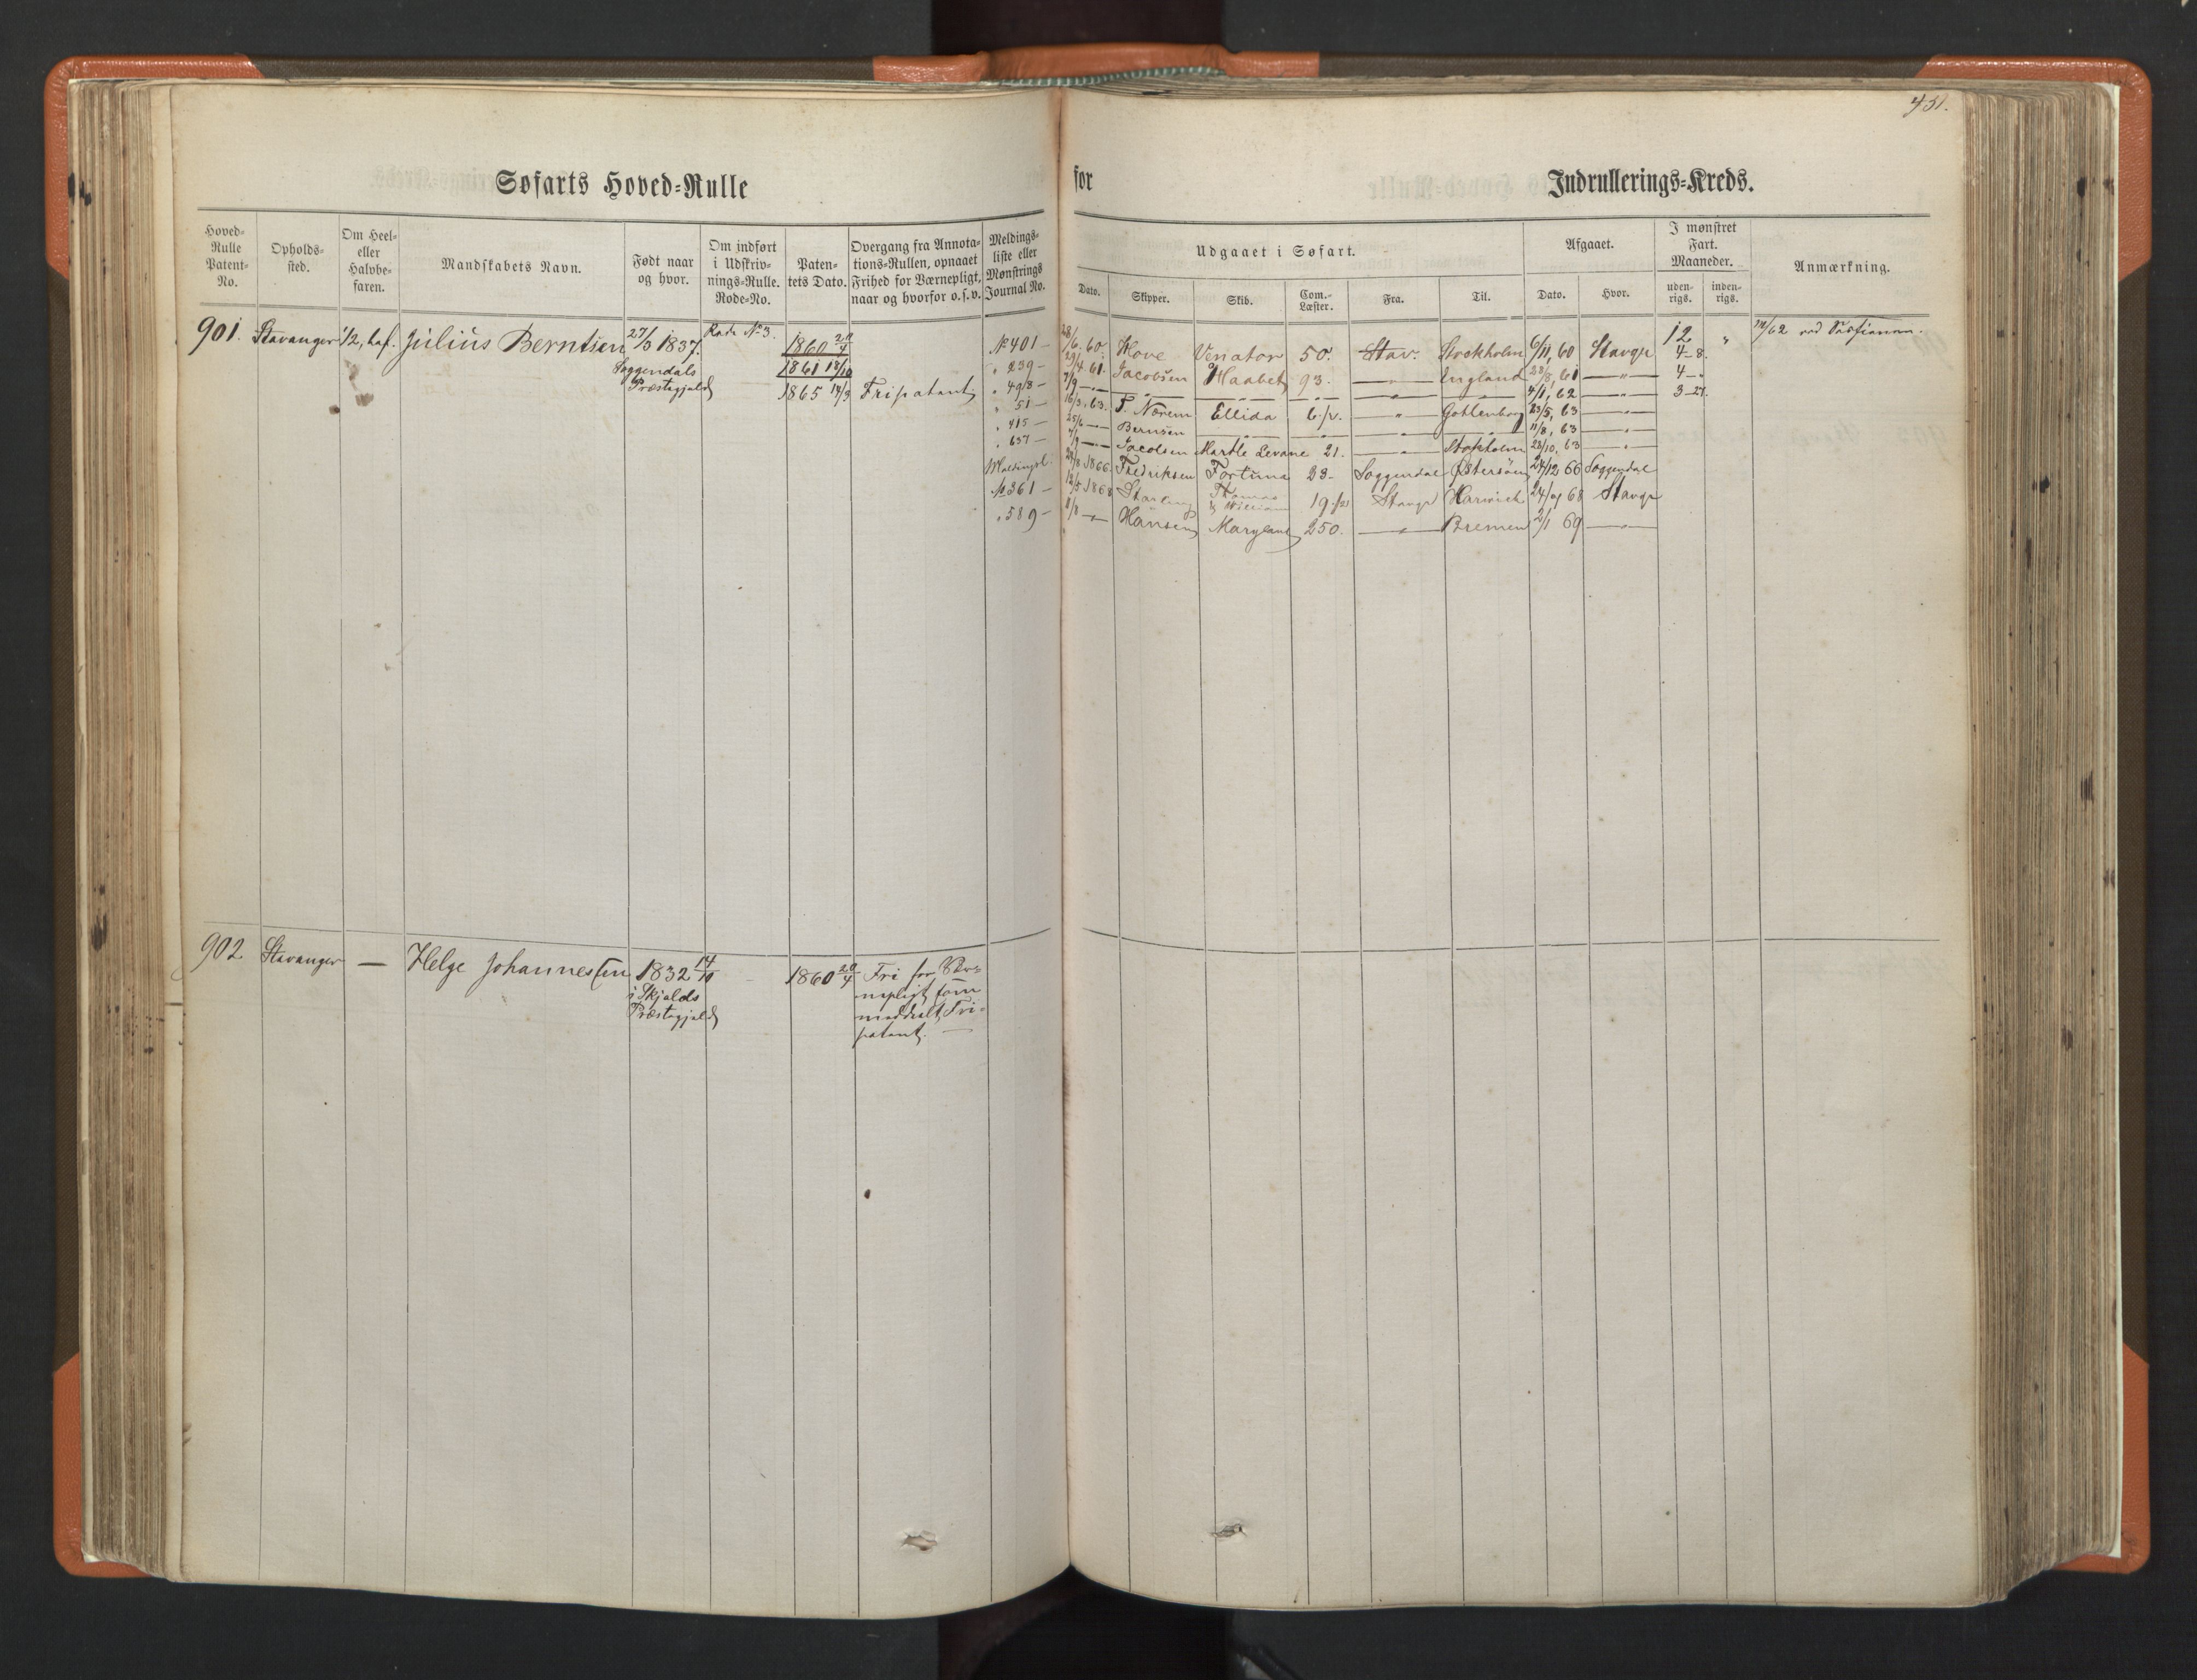 431.
Søfarts Hoved-Rulle for Indrullerings-Kreds.
Hoved-Rulle Patent-No.
Opholds-sted.
Om Heel- eller Halvbe-faren.
Mandskabets Navn.
Født naar og hvor.
Om indført i Udskriv-nings-Rulle. Rode-No.
Paten-tets Dato.
Overgang fra Annota-tions-Rullen, opnaaet Frihed for Værnepligt, naar og hvorfor o.s.v.
Meldings-liste eller Mønstrings Journal No.
Udgaaet i Søfart.
Dato. Skipper. Skib. Com.-Læster. Fra. Til.
Afgaaet.
Dato. Hvor.
I mønstret Fart. Maaneder.
uden-rigs. inden-rigs.
Anmærkning.
901. Stavanger 1/2, bef. Julius Berntsen 27/3 1837. Rode No 3. 1860 20/4
Soggendals Præstegjeld
1861
1865 Fripatent
No 401 — 28/6. 60. Hove Venator 50. Stav. Stockholm 6/11, 60 Stavgr 12 "
" 239 — 29/4 61. Jacobsen Haabet 93. — " — England 28/8, 61 — " — 4–8.
" 498 — 7/9 — " — — " — — " — — " — — " — — " — 4/1, 62 — " — 4 – "
" 51 — 16/3. 63. T. Nærem Ellida 6 1/2. " Gothenborg 23/5, 63 — " — 3–27
" 415 — 25/6 — " — Bernsen — " — — " — — " — — " — 11/8, 63 — " —
" 637 — 7/9 — " — Jacobsen Martle Levane 21. — " — Stokholm 28/10, 63 — " —
Meldingsl. 28/8 1866. Fredriksen Fortuna 23 – Soggendal Østersøen 24/12 66 Soggendal
No 361 — 12/5 1868 Starling Thomas & William 19 Stavgr Harwich 24/ 68 Stavgr
" 589 — 8/8 — " — Hansen Maryland 250. — " — Bremen 2/1 69 — " —
902 Stavanger — Helge Johannessen 1832 14/10 1860 20/4 Fri for Vær-
i Skjolds nepligt som
Præstegjeld meddelt Fri-
patent. —